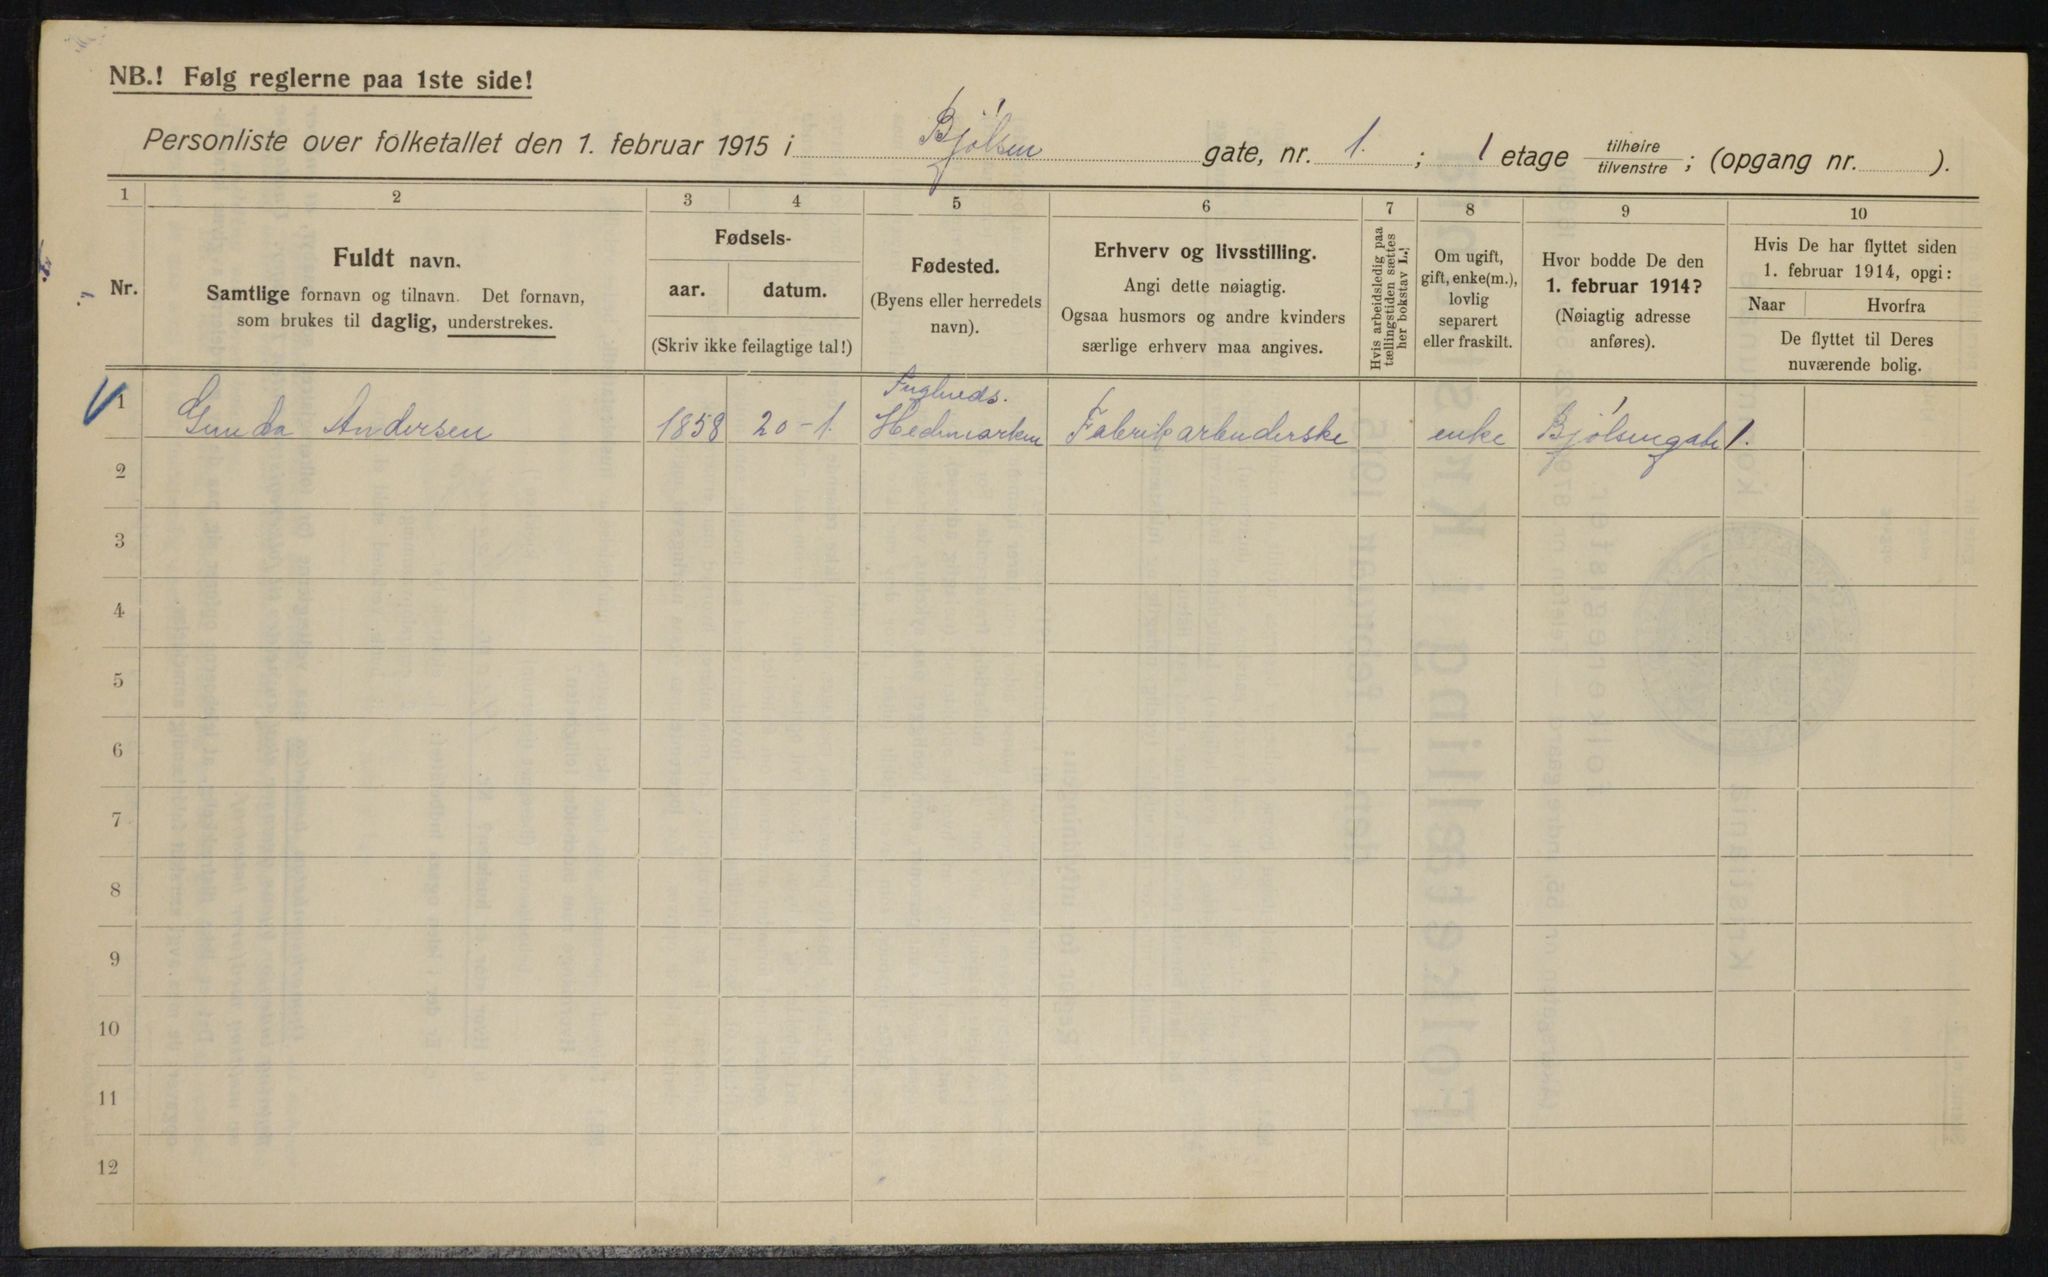 NB.! Følg reglerne paa 1ste side!
Personliste over folketallet den 1. februar 1915 i Bjølsen gate, nr. 1. ; 1 etage tilhøire / tilvenstre ; (opgang nr. ).
1 2 3 4 5 6 7 8 9 10
Nr.
Fuldt navn.
Samtlige fornavn og tilnavn. Det fornavn,
som brukes til daglig, understrekes.
Fødsels-
aar. datum.
(Skriv ikke feilagtige tal!)
Fødested.
(Byens eller herredets
navn).
Erhverv og livsstilling.
Angi dette nøiagtig.
Ogsaa husmors og andre kvinders
særlige erhverv maa angives.
Hvis arbeidsledig paa
tællingstiden sættes
her bokstav L.!
Om ugift,
gift, enke(m.),
lovlig
separert
eller fraskilt.
Hvor bodde De den
1. februar 1914?
(Nøiagtig adresse
anføres).
Hvis De har flyttet siden
1. februar 1914, opgi:
Naar Hvorfra
De flyttet til Deres
nuværende bolig.
1 Gunda Andersen 1858 20-1. Hedemarken Fabrikarbeiderske enke Bjølsengate 1.
2
3
4
5
6
7
8
9
10
11
12